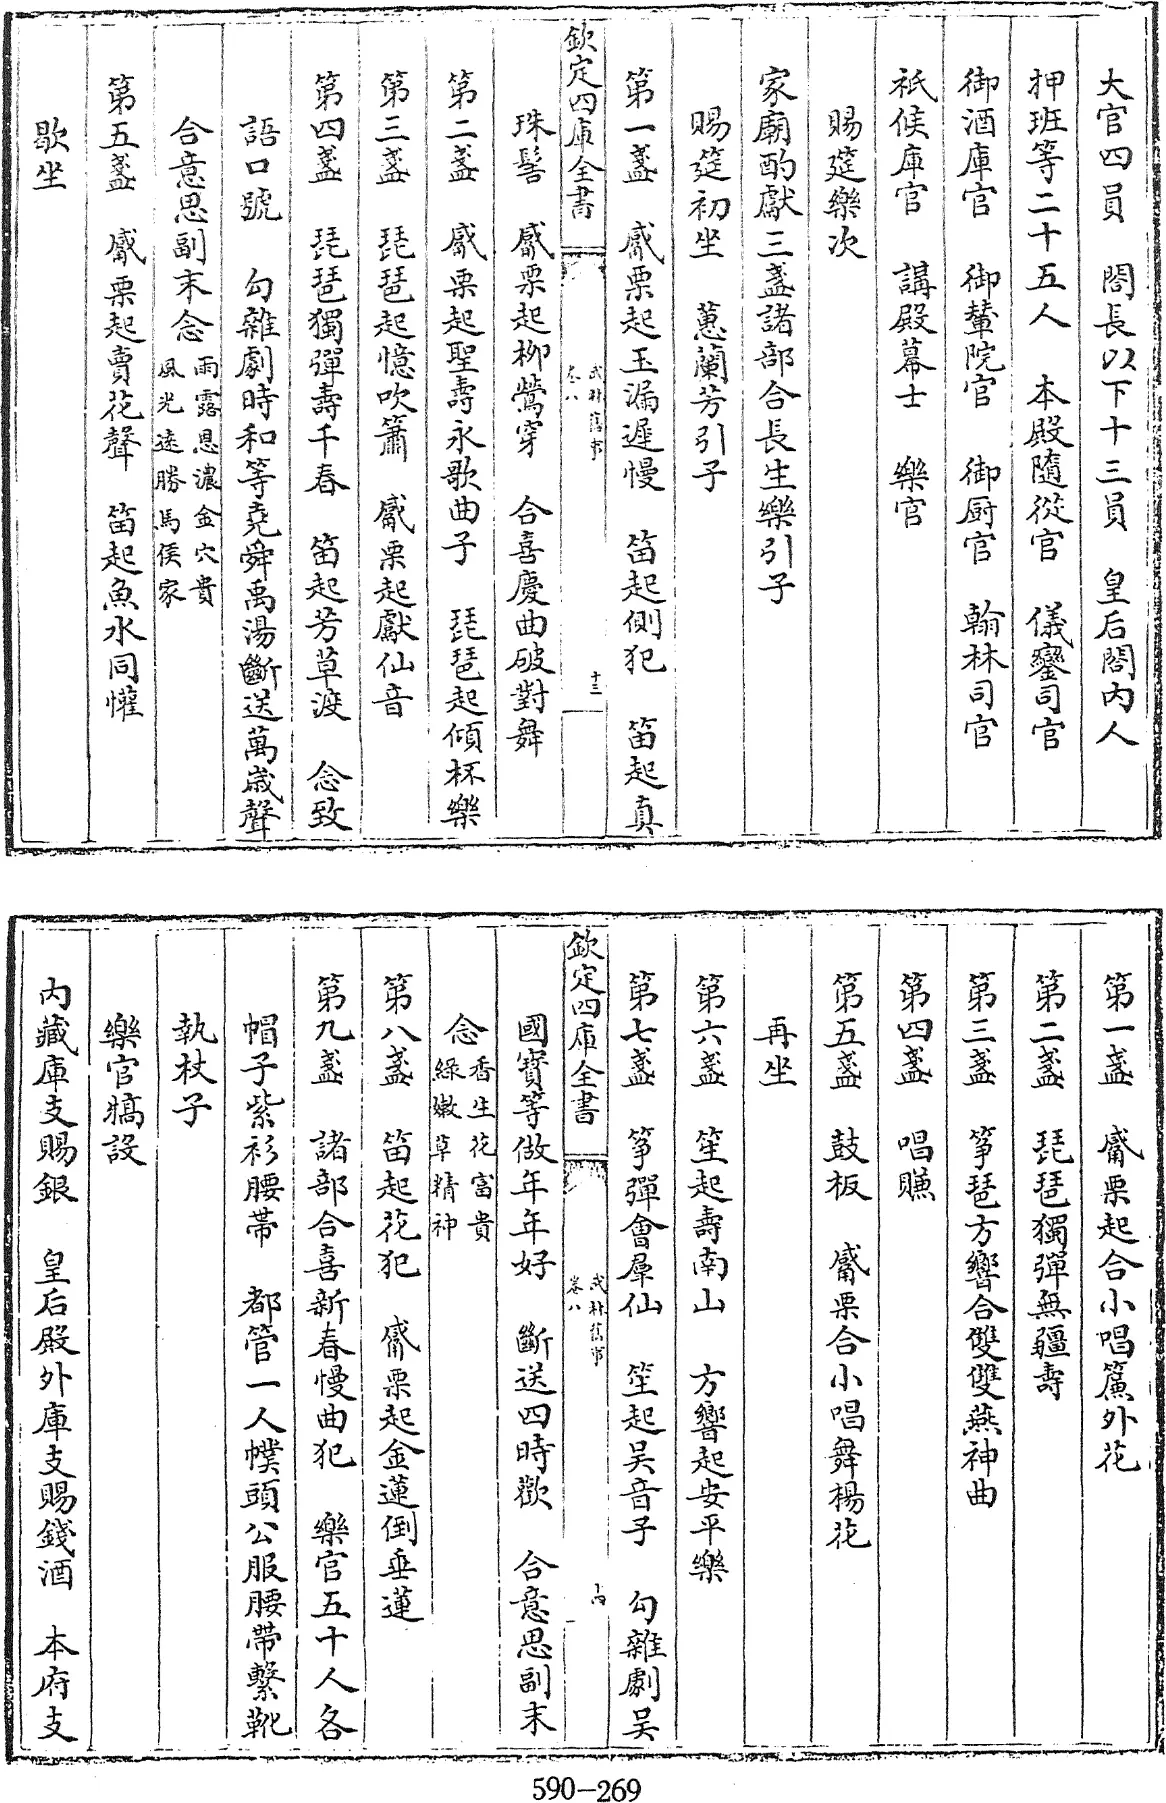 大官四員　閤長以下十三員　皇后閤内人
押班等二十五人　本殿隨從官　儀鑾司官
御酒庫官　御輦院官　御厨官　翰林司官
祇候庫官　講殿幕士　樂官
賜筵樂次
家廟酌獻三盞諸部合長生樂引子
賜筵初坐　蕙蘭芳引子
第一盞　觱栗起玉漏遲慢　笛起側犯　笛起真
欽定四庫全書
武林舊事
卷八
十三
珠髻　觱栗起柳鶯穿　合喜慶曲破對舞
第二盞　觱栗起聖壽永歌曲子　琵琶起傾杯樂
第三盞　琵琶起憶吹簫　觱栗起獻仙音
第四盞　琵琶獨彈壽千春　笛起芳草渡　念致
語口號　勾雜劇時和等堯舜禹湯斷送萬歲聲
合意思副末念雨露恩濃金穴貴
風光遠勝馬侯家
第五盞　觱栗起賣花聲　笛起魚水同懽
歇坐
第一盞　觱栗起合小唱簾外花
第二盞　琵琶獨彈無疆壽
第三盞　筝琶方響合雙雙燕神曲
第四盞　唱賺
第五盞　鼓板　觱栗合小唱舞楊花
再坐
第六盞　笙起壽南山　方響起安平樂
第七盞　筝彈會羣仙　笙起吴音子　勾雜劇吴
欽定四庫全書
武林舊事
卷八
十四
國寳等做年年好　斷送四時歡　合意思副末
念香生花富貴
緑嫩草精神
第八盞　笛起花犯　觱栗起金蓮倒垂蓮
第九盞　諸部合喜新春慢曲犯　樂官五十人各
帽子紫衫腰帶　都管一人幞頭公服腰帶繫靴
執杖子
樂官犒設
内藏庫支賜銀　皇后殿外庫支賜錢酒　本府支
590-269